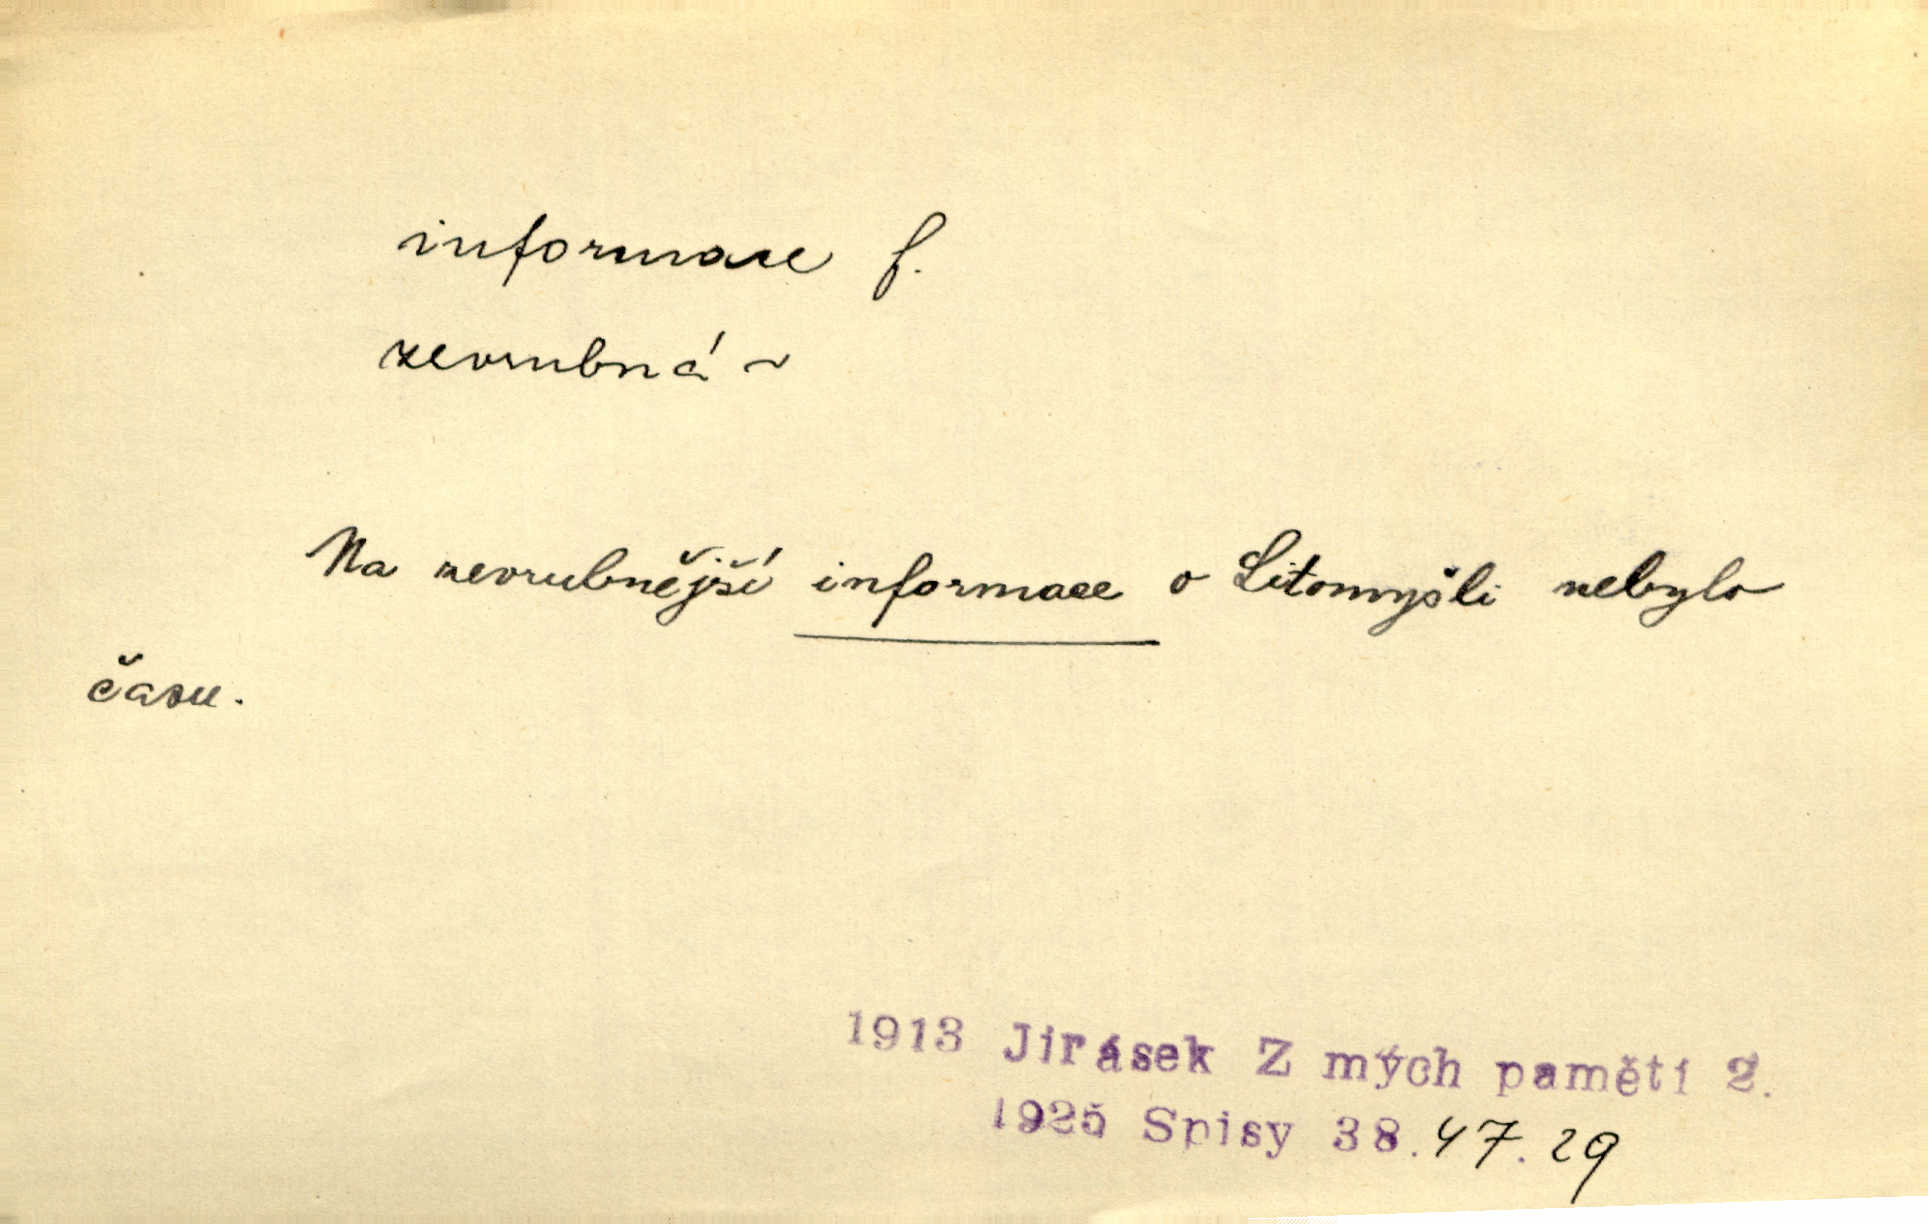 informace f.
zevrubná ~
Na zevrubnější informace o Litomyšli nebylo
času.
1913 Jirásek Z mých pamětí 2.
1925 Spisy 38. 47. 29